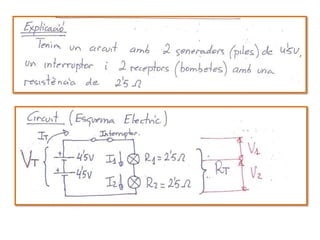 Explicació
Tenim un circuit amb 2 generadors (piles) de 4'5V,
un interruptor i 2 receptors (bombetes) amb una
resistència de 2'5 Ω
Circuit (Esquema Elèctric)
I_T Interruptor.
V_T + 4'5V I_1 R_1=2'5Ω R_T V_1
+ 4'5V I_2 R_2=2'5Ω V_2